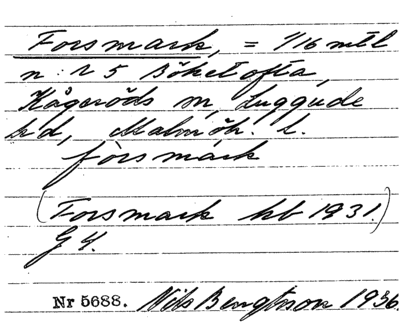 Forsmark, = 1/16 mtl
n:r 5 Böketofta,
Kågeröds sn, Luggude
hd, Malmöh. l.
fòrsmárk
(Forsmark kb 1931.)
G 4.
Nr 5688. Nils Bengtsson 1936.